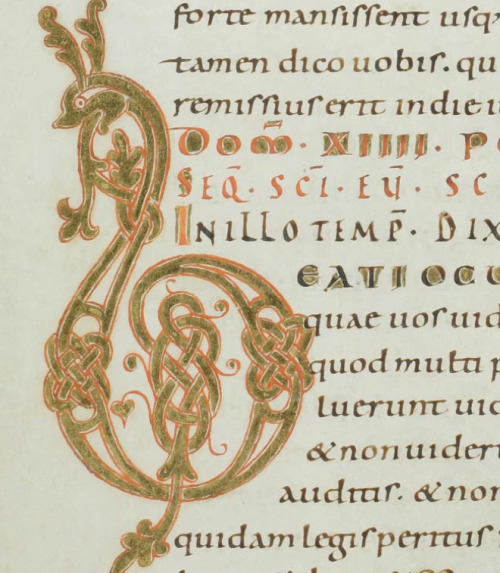 forte mansissent usq
tamen dico uobis. qu
remissius erit in die i
DOM̄. XIIII. P
SEQ̄. SC̄I. EŪ. SC
IN ILLO TEMP̄. DIX
BEATI OCU
quae uos uid
quod multi p
luerunt uid
& non uider
auditis. & non
quidam legis peritus